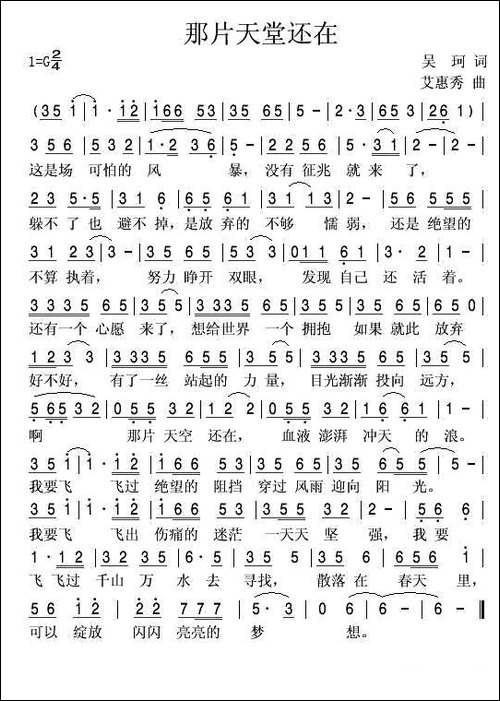 那片天堂还在
1=G2/4
吴 珂 词
艾惠秀 曲
(35 1|1·12|166 53|3535 65|5-|2·3|65 3|26 1)|
356|532|1·2 36|5-|2256|5·31|2-|2-|
这是场 可怕的 风 暴, 没有 征兆 就 来 了,
23 5·5|31 6|356 65|31 13|2-|56 555|
躲不 了也 避不 掉, 是放 弃的 不够 懦 弱, 还是 绝望的
31 23|3-|35 65|23 3|011 61|3·2|1-|
不算 执着, 努力 睁开 双眼, 发现 自己 还 活 着。
3335 65|35 5|3335 65|35 65|65 65|650|
还有一个 心愿 来了, 想给世界 一个 拥抱 如果 就此 放弃
123 3|3335 65|321|3 5|3335 65|35 5|
好不好, 有了一丝 站起的 力 量, 目光渐渐 投向 远方,
565 32|055 32|2-|055 32|16 61|1-|
啊 那片 天空 还在, 血液 澎湃 冲天 的 浪。
35 1|1-|12|166 53|35 65|35 65|5-|
我要飞 飞过 绝望的 阻挡 穿过 风雨 迎向 阳 光。
35 1|1-|12|166 53|355 32|2-|56|
我要飞 飞出 伤痛的 迷茫 一天天 坚 强, 我 要
1·12|35 32|23 3|556 1|656|
飞 飞过 千山 万 水去 寻找, 散落 在 春天 里,
56 12|22 777|5·3|06|06|5-|5-|
可以 绽放 闪闪 亮亮的 梦 想。